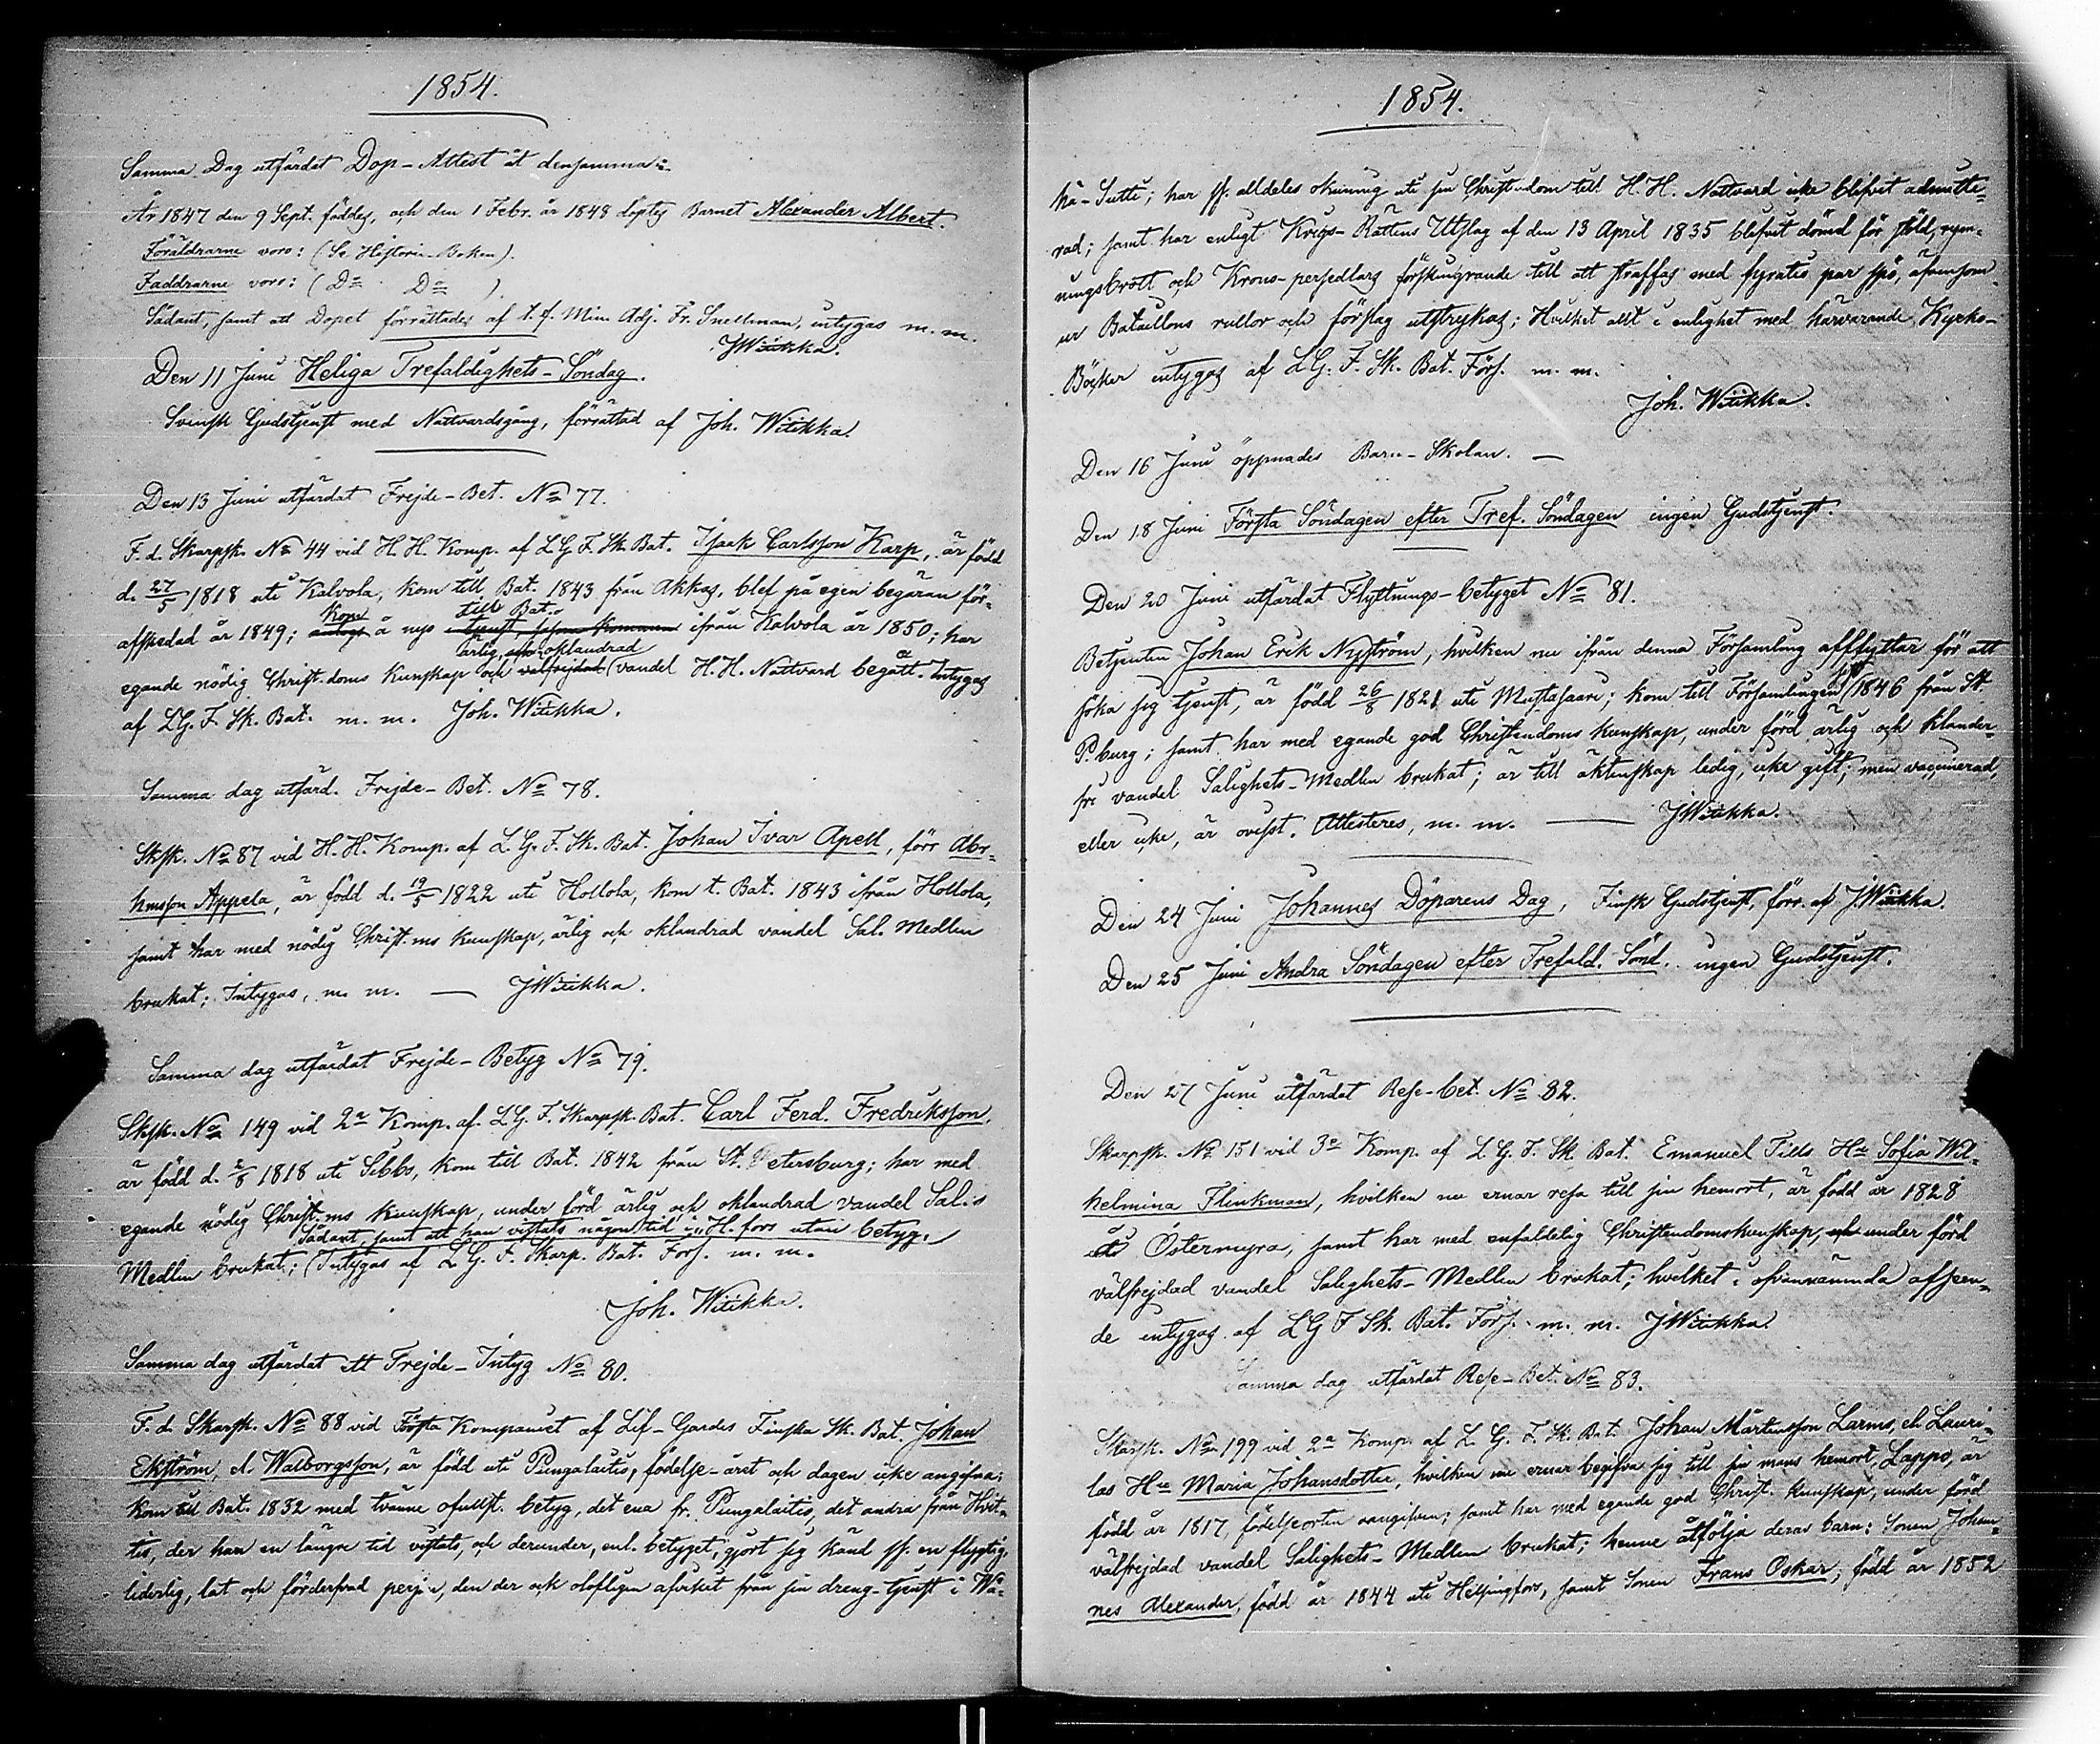 1854.
Samma Dag utfärdat Dop-Attest åt densamma:
År 1847 den 9 Sept. föddes, och den 1 Febr. år 1848 döptes Barnet Alexander Albert.
Föräldrarne voro: (Se Historie-Boken).
Faddrarne voro: (Do Do )
Sådant, samt att Dopet förrättades af t. f. Min. Adj. Fr. Snellman, intygas m. m.
JWitikka.
Den 11 Juni Heliga Trefaldighets-Söndag.
Svensk Gudstjenst med Nattvardsgång, förrättad af Joh. Witikka.
Den 13 Juni utfärdat Frejde-Bet. No 77.
F. d. Skarpsk. No 44 vid H. H. Komp. af L G F. Sk. Bat. Isaak Carlsson Karp, är född
d. 27/5 1818 uti Kalvola, kom till Bat. 1843 från Akkas, blef på egen begäran för-
kom till Bat.
afskedad år 1849; antogs å nyo i tjenst, såsom kommen ifrån Kalvola år 1850; har
ärlig och oklandrad
egande nödig Christ.doms Kunskap och välfrejdad vandel H. H. Nattvard begått. Intygas
af L G. F. Sk. Bat. m. m. Joh. Witikka.
Samma dag utfärd. Frejde-Bet. No 78.
Sksk. No 87 vid H. H. Komp. af L. G. F. Sk. Bat. Johan Ivar Apell, förr Abr-
hmsson Appela, är född d. 19/5 1822 uti Hollola, kom t. Bat. 1843 ifrån Hollola,
samt har med nödig Christ.ms kunskap, ärlig och oklandrad vandel Sal. Medlen
brukat; Intygas, m. m. — JWitikka.
Samma dag utfärdat Frejde-Betyg No 79.
Sksk. No 149 vid 2a Komp. af L G. F. Skarpsk. Bat. Carl Ferd. Fredriksson,
är född d. 2/8 1818 uti Sibbo, kom till Bat. 1842 från St. Petersburg; har med
egande nödig Christ.ms kunskap, under förd ärlig och oklandrad vandel Sal.s
Sådant, samt att han vistats någon tid i H.fors utan betyg,
Medlen brukat; Intygas af L G. F. Skarp. Bat. Förs. m. m.
Joh. Witikka.
Samma dag utfärdat ett Frejde-Intyg No 80.
F. d. Skarpsk. No 88 vid Första Kompaniet af Lif-Gardes Finska Sk. Bat. Johan
Ekström, el. Walborgsson, är född uti Pungalaitis, födelse-året och dagen icke angifna;
kom till Bat. 1832 med tvänne ofullst. betyg, det ena fr. Pungalaitis, det andra från Hvit-
tis, der han en längre tid vistats, och derunder, enl. betyget, gjort sig känd ss. en flygtig,
liderlig, lat och förderfvad person, den der ock olofligen afvikit från sin dreng-tjenst i Wä-
1854.
hä-Sutti; har ss. alldeles okunnig uti sin Christ.dom till H. H. Nattvard icke blifvit admitte-
rad; samt har enligt Krigs-Rättens Utslag af den 13 April 1835 blifvit dömd för stöld, rym-
ningsbrott och Krono-persedlars förskingrande till att straffas med fyratio par spö, äfvensom
ur Bataillons rullor och förslag utstrykas; Hvilket allt i enlighet med härvarande Kyrko-
Böcker intygas af L G. F. Sk. Bat. Förs. m. m.
Joh. Witikka.
Den 16 Juni öppnades Barn-Skolan. —
Den 18 Juni Första Söndagen efter Tref. Söndagen ingen Gudstjenst.
Den 20 Juni utfärdat Flyttnings-betyget No 81.
Betjenten Johan Erik Nyström, hvilken nu ifrån denna Församling afflyttar för att
söka sig tjenst, är född 26/8 1821 uti Mustasaari; kom till Församlingen 1846 från St.
P.burg; samt har med egande god Christendoms kunskap, under förd ärlig och klander-
fri vandel Salighets-Medlen brukat; är till äktenskap ledig, icke gift; men vaccinerad,
eller icke, är ovisst. Attesteres, m. m. — JWitikka.
Den 24 Juni Johannes Döparens Dag, Finsk Gudstjenst, förr. af JWitikka.
Den 25 Juni Andra Söndagen efter Trefald. Sönd. ingen Gudstjenst.
Den 27 Juni utfärdat Rese-bet. No 82.
Skarpsk. No 151 vid 3e Komp. af L G. F. Sk. Bat. Emanuel Tills Hu Sofia Wil-
helmina Flinkman, hvilken nu ernar resa till sin hemort, är född år 1828
uti Östermyra, samt har med enfaldelig Christendomskunskap, och under förd
välfrejdad vandel Salighets-Medlen brukat; hvilket i ofvannämnda afseen-
de intygas af L G F Sk. Bat. Förs. m. m. JWitikka.
Samma dag utfärdat Rese-Bet. No 83.
Skarpsk. No 199 vid 2a Komp. af L. G. F. Sk. Bat. Johan Mårtensson Larms, el. Lauri-
las Hu Maria Johansdotter, hvilken nu ernar begifva sig till sin mans hemort, Lappo, är
född år 1817, födelseorten oangifven; samt har med egande god Christ. kunskap, under förd
välfrejdad vandel Salighets-Medlen brukat; henne åtfölja deras barn: Sonen Johan-
nes Alexander, född år 1844 uti Helsingfors, samt Sonen Frans Oskar, född år 1852